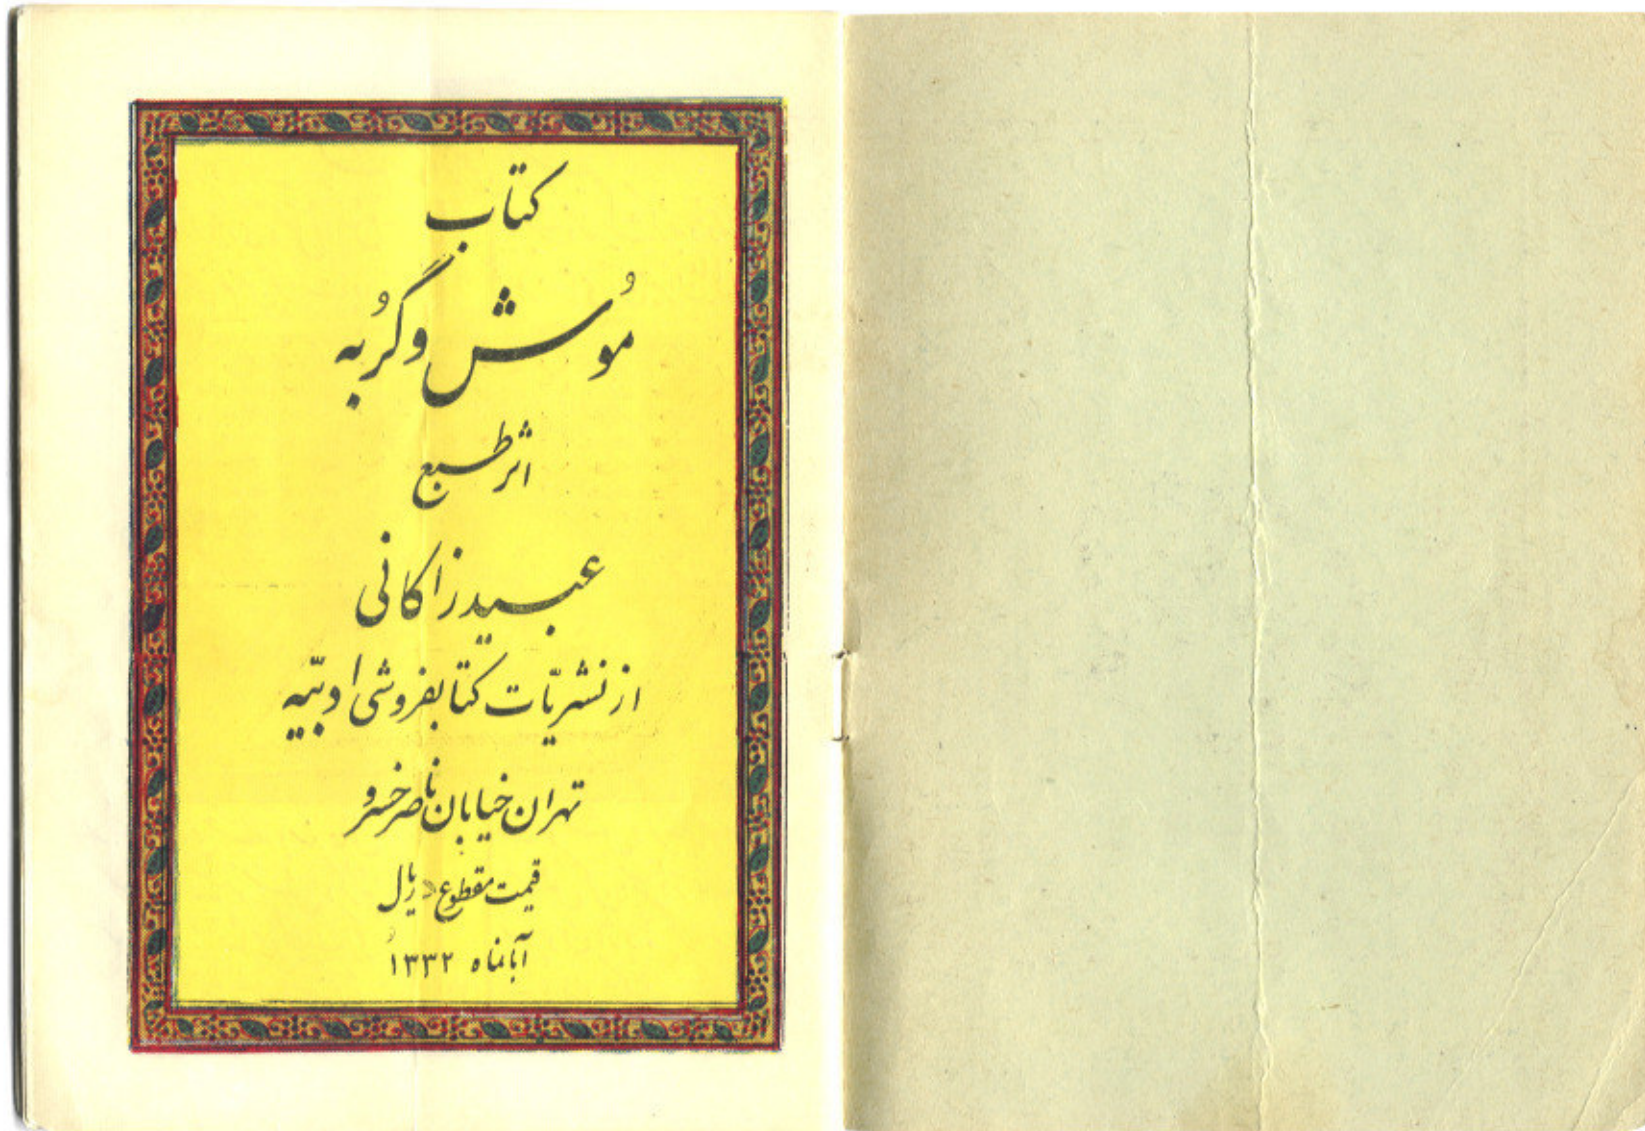 کتاب
موُش و گرُبه
اثر طبع
عبید زاکانی
از نشریّات کتابفروشی ادبیّه
تهران خیابان ناصر خسرو
قیمت مقطوع ریال
آبانماه ۱۳۳۲